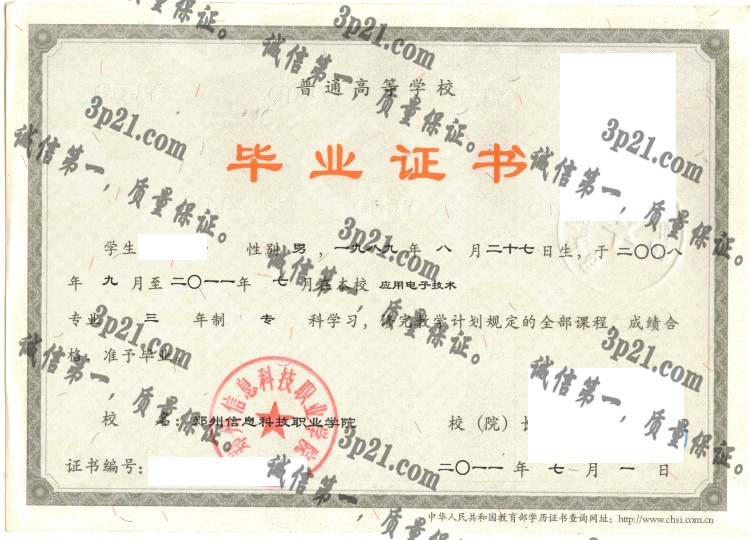 普通高等学校
毕业证书
学生 性别 男 ，一九八九 年 八 月 二十七 日生，于 二〇〇八
年 九 月至 二〇一一 年 七 月在本校 应用电子技术
专业 三 年制 专 科学习，修完教学计划规定的全部课程，成绩合
格，准予毕业。
校 名：郑州信息科技职业学院 校（院）长
证书编号： 二〇一一 年 七 月 一 日
中华人民共和国教育部学历证书查询网址：http://www.chsi.com.cn
郑州信息科技职业学院
3p21.com
诚信第一，质量保证。
3p21.com
诚信第一，质量保证。
3p21.com
诚信第一，质量保证。
3p21.com
诚信第一，质量保证。
3p21.com
诚信第一，质量保证。
3p21.com
诚信第一，质量保证。
3p21.com
诚信第一，质量保证。
质量保证。